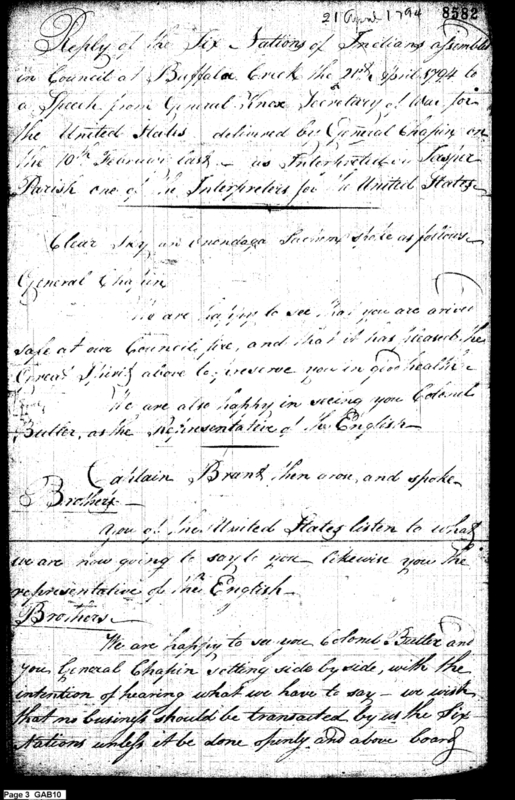 21 April 1794 8582
Reply of the Six Nations of Indians assembled
in Council at Buffaloe Creek the 21st April 1794 to
a Speech from General Knox Secretary of War for
the United States delivered by General Chapin on
the 10th February last as Interpreted Jasper
Parish one of the Interpreters for the United States
Clear Sky an Onondaga Sachem spoke as follows
General Chapin
We are happy to see that you are arrived
safe at our Council fire, and that it has pleased the
Great Spirit above to preserve you in good health
We are also happy in seeing you Colonel
Butler, as the Representative of the English
Captain Brant then arose, and spoke
Brothers
You of the United States listen to what
we are now going to say to you likewise you the
representative of the English
Brothers
We are happy to see you Colonel Butler and
you General Chapin setting side by side, with the
intention of hearing what we have to say – we wish
that no business should be transacted by us the Six
Nations unless it be done openly and above board
Page 3 GAB10